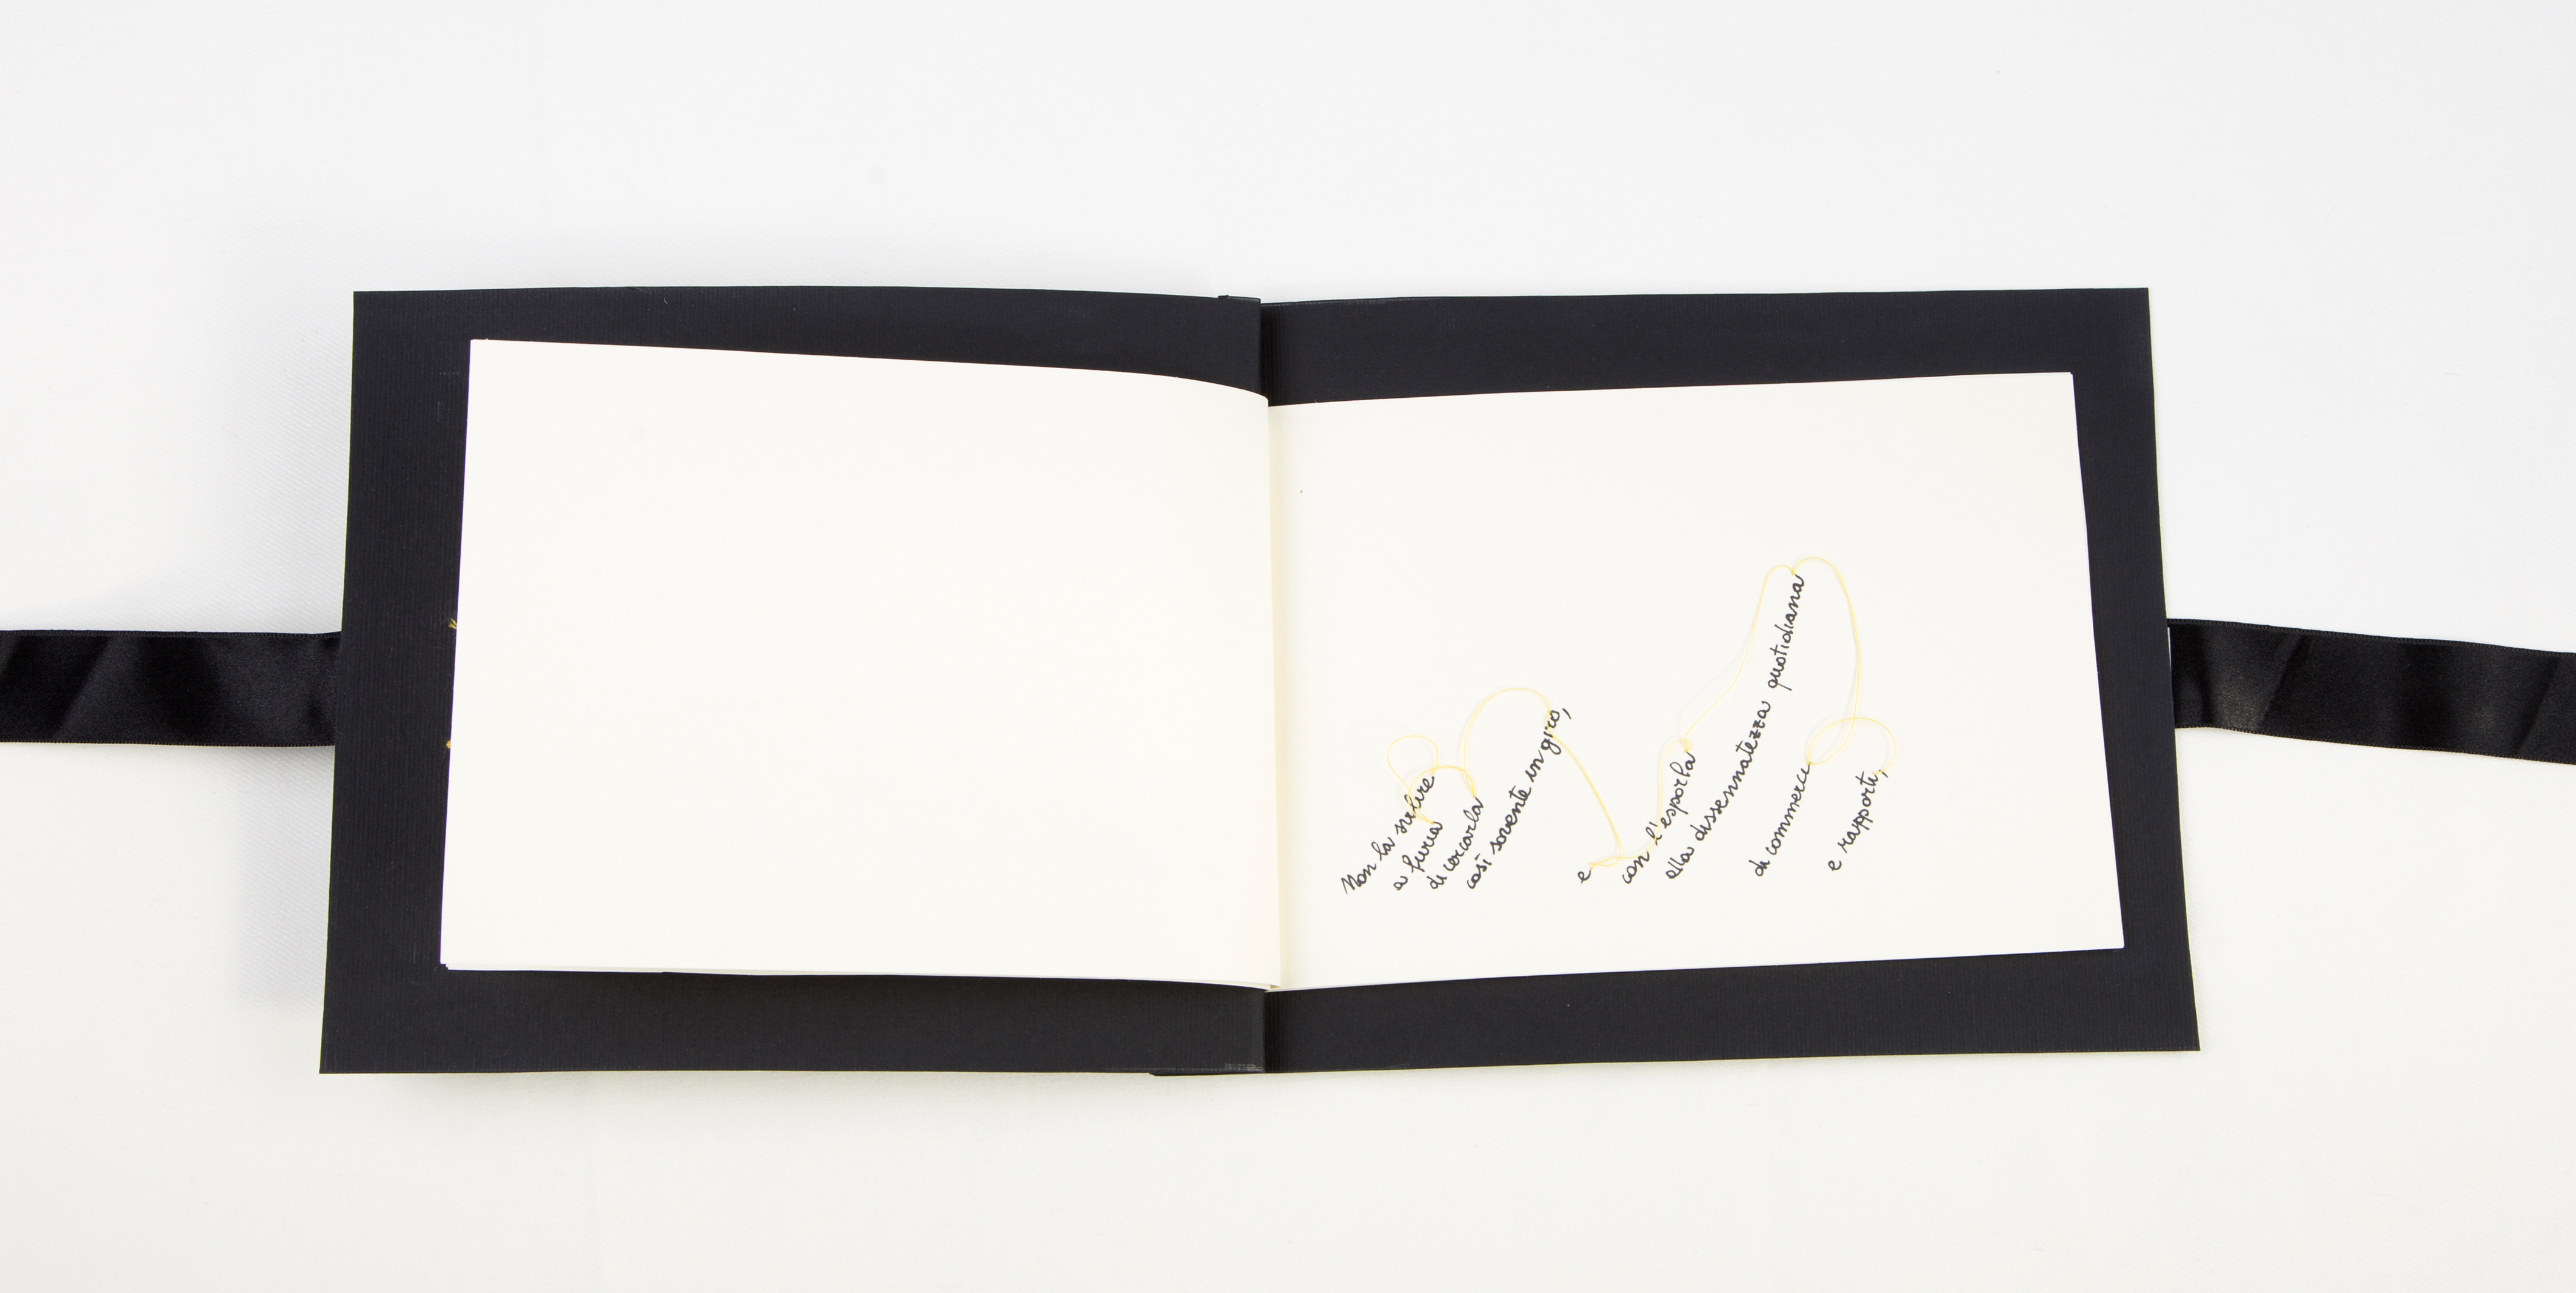 Non la svilire
a furia
di
così sovente in giro,
e
con l'esporla
alla dissennatezza quotidiana
di commerci
e rapporti,